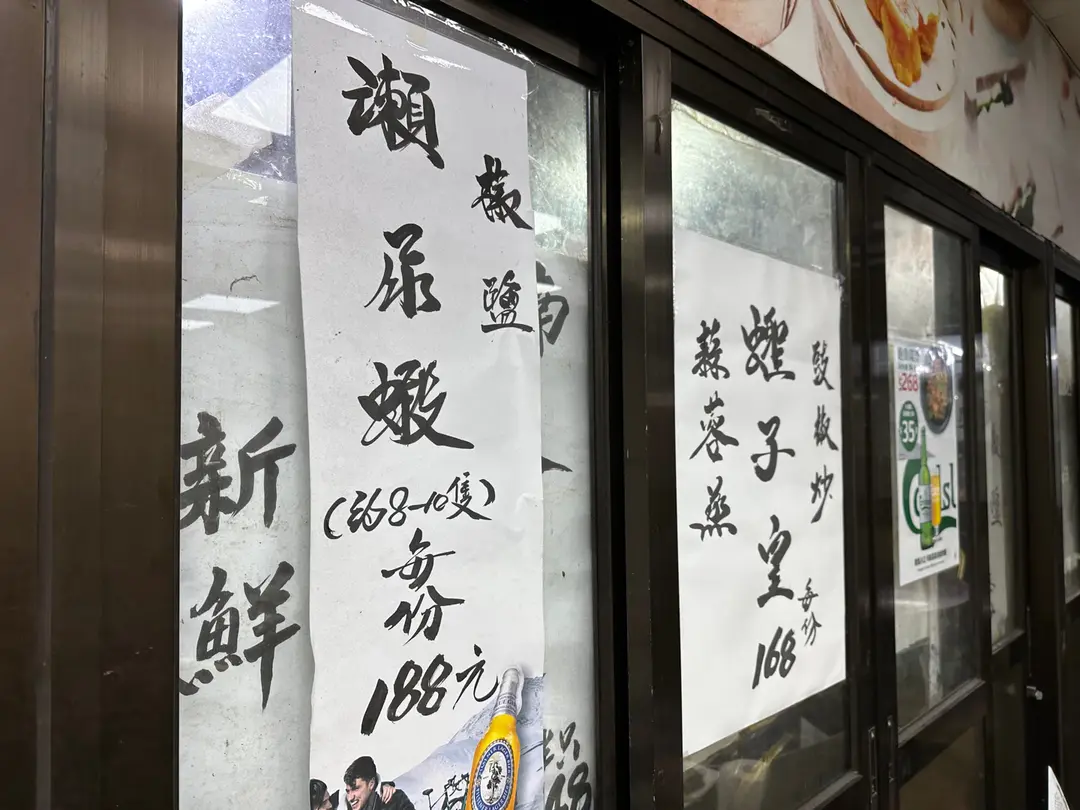 椒鹽
瀨尿蝦
(約8-10隻)
每份
188元
新鮮
豉椒炒
蟶子皇
每份
168
蒜蓉蒸
$268
35